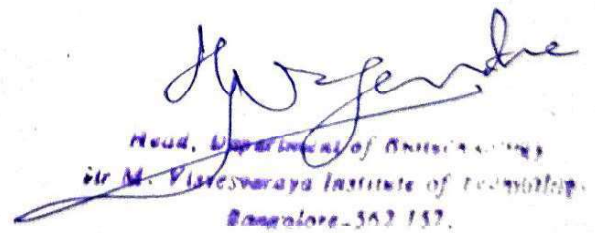 Head, Department of
Sir M. Visvesvaraya Institute of Technology
Bangalore-562 157.